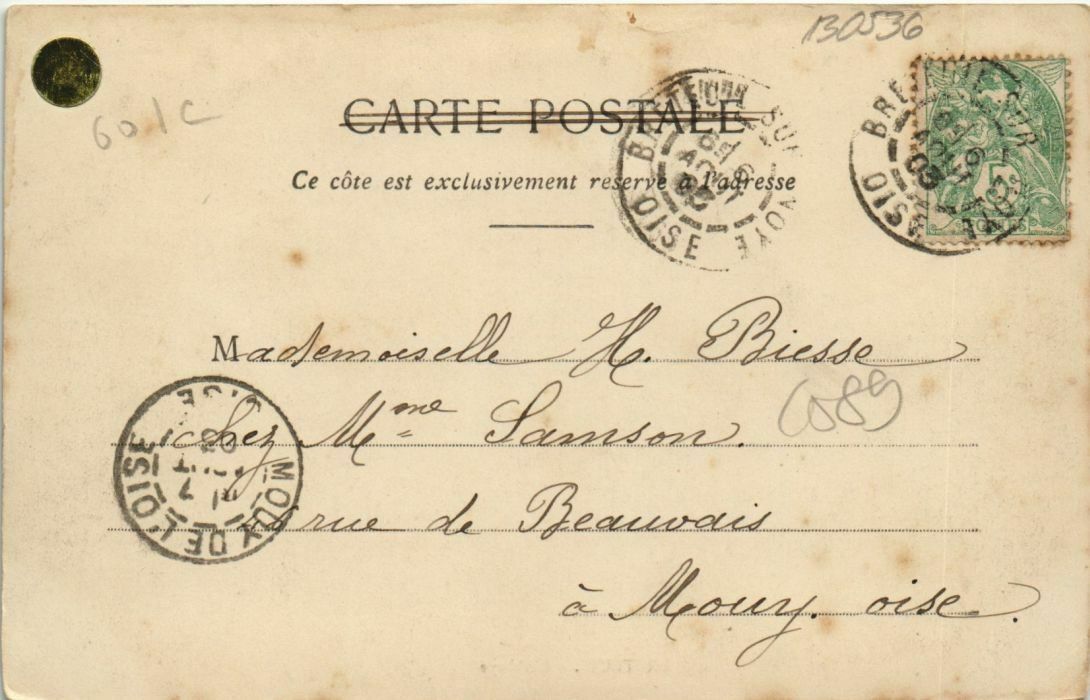 130536
601c
CARTE POSTALE
Ce côte est exclusivement reservé à l'adresse
BRETEUIL-SUR-NOYE
6
AOUT
03
OISE
BRETEUIL-SUR-NOYE
6
AOUT
03
OISE
5
Mademoiselle H. Biesse
6089
chez Mme Samson.
rue de Beauvais
à Mouy. oise.
MOUY DE L'OISE
7
AOUT
03
OISE